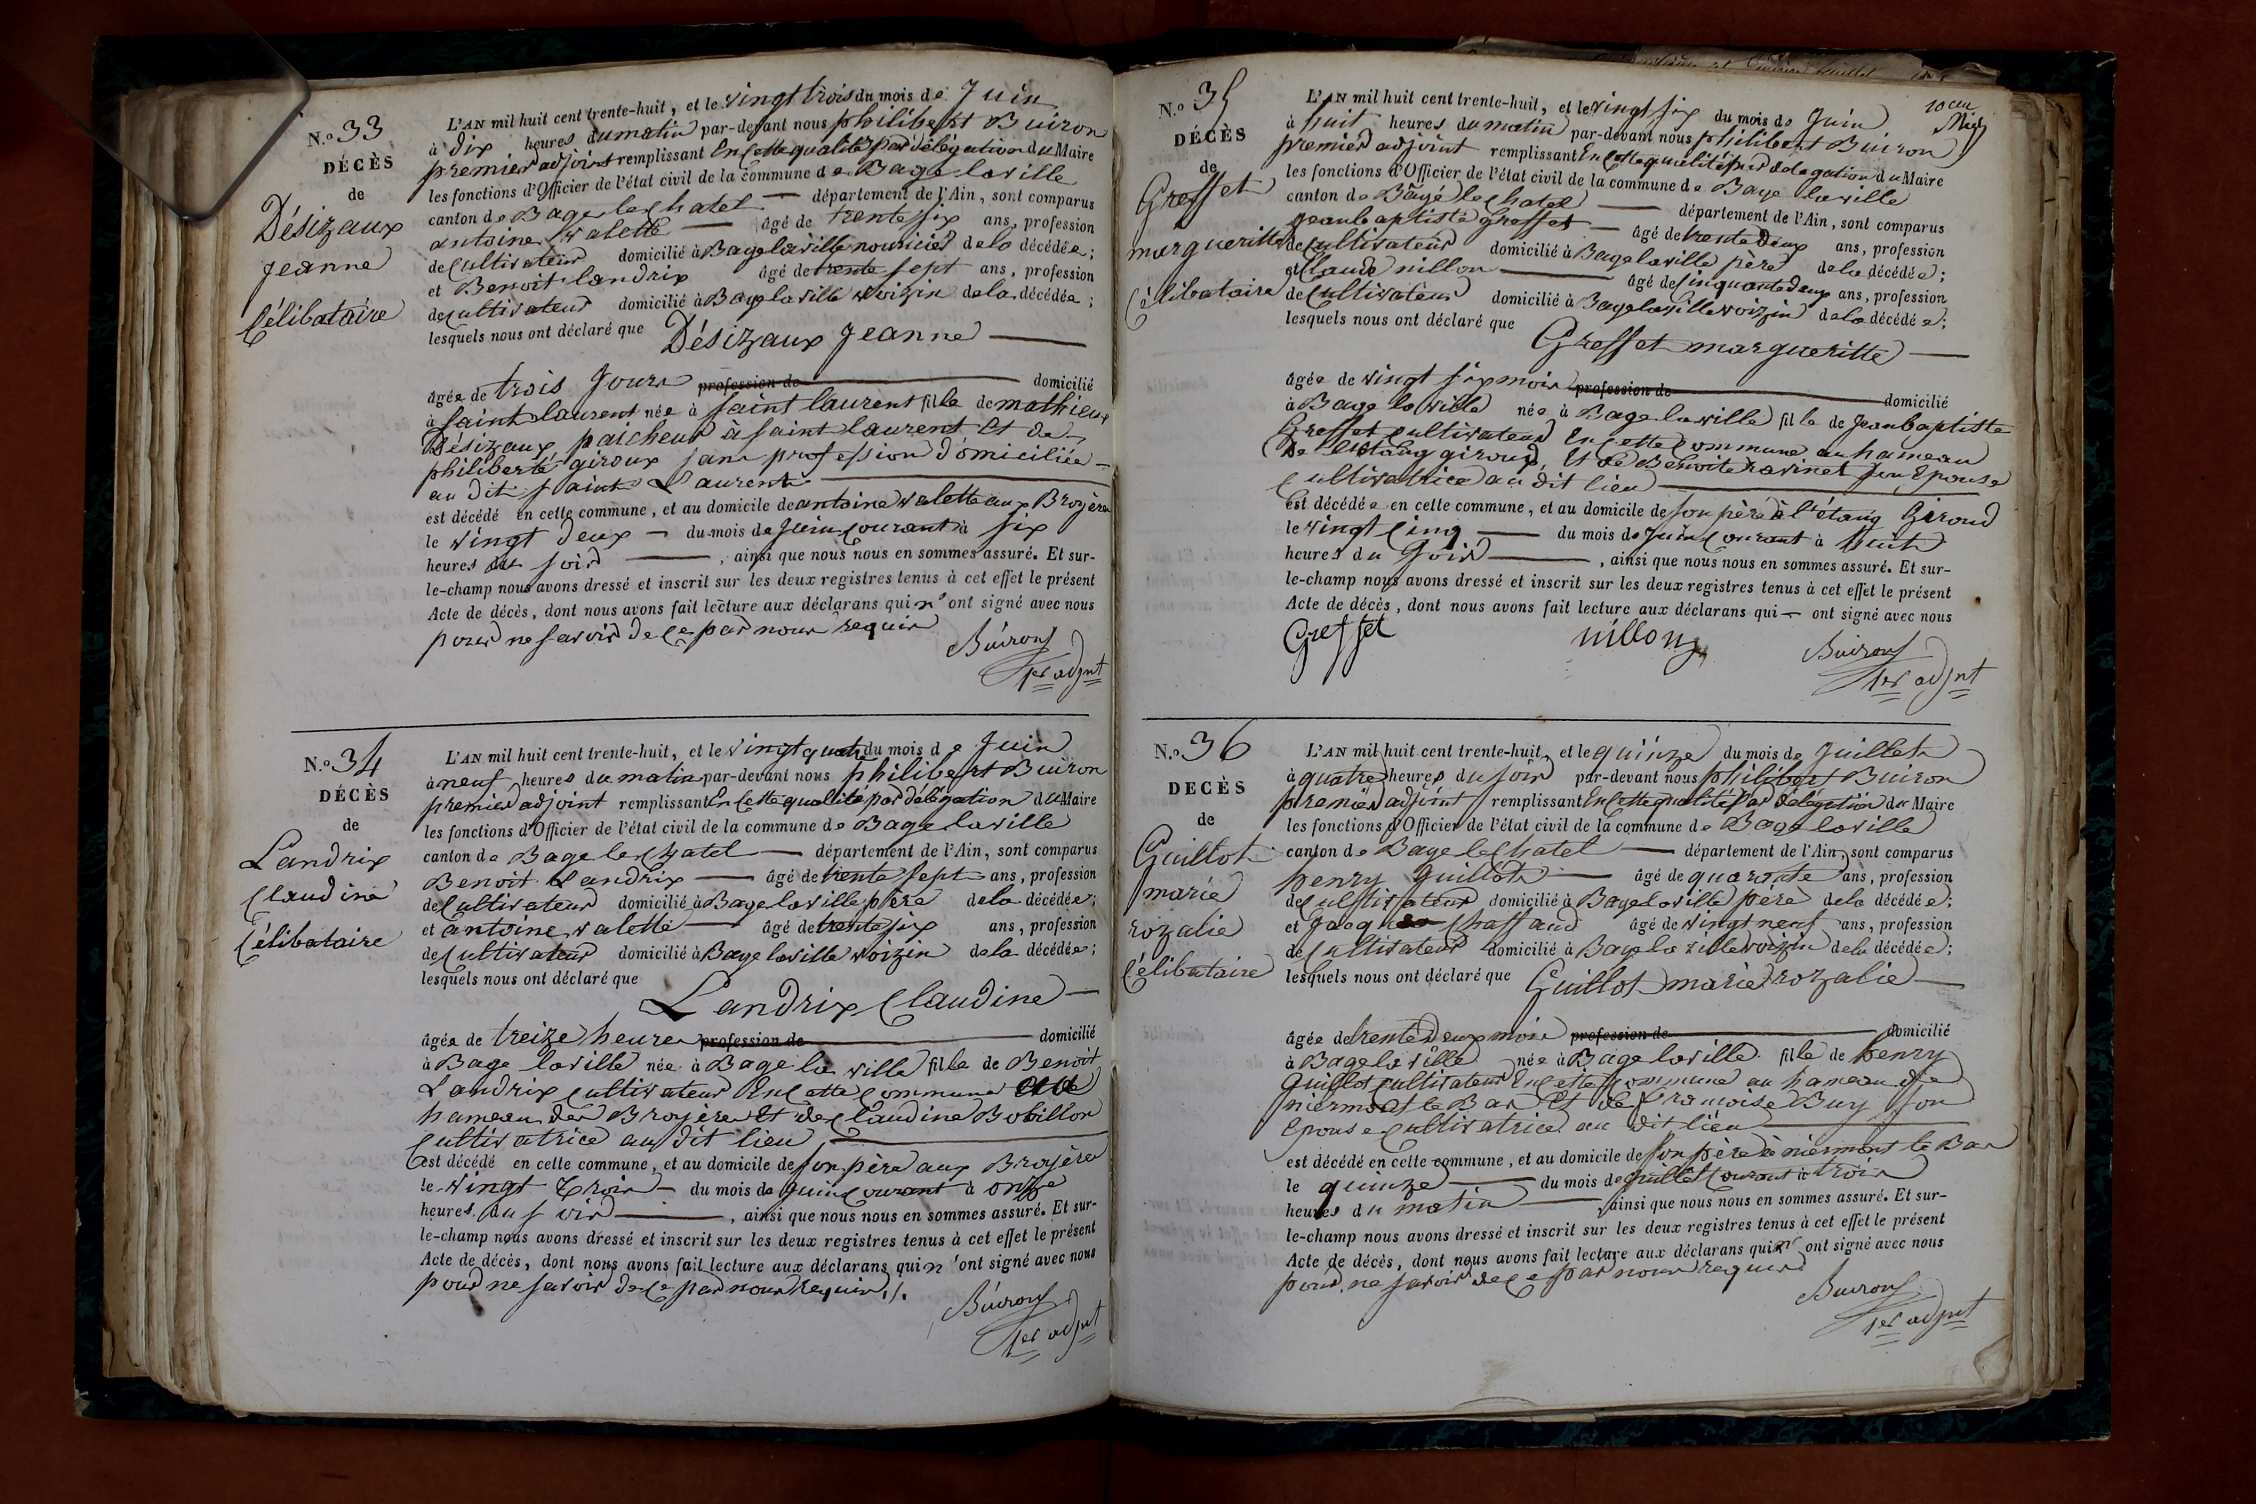 N.º 33
DÉCÈS
de
Désizaux
jeanne
Célibataire
L'AN mil huit cent trente-huit, et le vingt trois du mois de Juin
à dix heures du matin par-devant nous philibert Buiron
premier adjoint remplissant En Cette qualité par délégation du Maire
les fonctions d'Officier de l'état civil de la commune de Bage laville
canton de Bage le Chatel — département de l'Ain, sont comparus
antoine valette — âgé de trente six ans, profession
de Cultivateur domicilié à Bage laville nouricier de la décédée;
et Benoit landrix âgé de trente sept ans, profession
de cultivateur domicilié à Bage laville voizin de la décédée;
lesquels nous ont déclaré que Désizaux jeanne —
âgée de trois Jours profession de domicilié
à saint laurent née à saint laurent fille de mathieux
Désizaux paicheur à saint laurent et de
philiberte giroux sans profession domiciliée —
au dit saint Laurent —
est décédé en cette commune, et au domicile de antoine valette aux Broyères
le vingt deux — du mois de Juin Courant à six
heures du soir —, ainsi que nous nous en sommes assuré. Et sur-
le-champ nous avons dressé et inscrit sur les deux registres tenus à cet effet le présent
Acte de décès, dont nous avons fait lecture aux déclarans qui n'ont signé avec nous
pour ne savoir de Ce par nous requis
Buiron
1er adjnt
N.º 34
DÉCÈS
de
Landrix
Claudine
Célibataire
L'AN mil huit cent trente-huit, et le vingt quatre du mois de Juin
à neuf heures du matin par-devant nous philibert Buiron
premier adjoint remplissant En Cette qualité par délégation du Maire
les fonctions d'Officier de l'état civil de la commune de Bage laville
canton de Bage le Chatel — département de l'Ain, sont comparus
Benoit Landrix — âgé de trente sept ans, profession
de Cultivateur domicilié à Bage laville père de la décédée;
et antoine valette — âgé de trente six ans, profession
de Cultivateur domicilié à Bage laville voizin de la décédée;
lesquels nous ont déclaré que Landrix Claudine —
âgée de treize heures profession de domicilié
à Bage laville née à Bage la ville fille de Benoit
Landrix cultivateur En Cette Commune au
hameau des Broyères Et de Claudine Bobillon
Cultivatrice au dit lieu —
est décédé en cette commune, et au domicile de son père aux Broyères
le vingt Trois — du mois de Juin Courant à onze
heures du soir —, ainsi que nous nous en sommes assuré. Et sur-
le-champ nous avons dressé et inscrit sur les deux registres tenus à cet effet le présent
Acte de décès, dont nous avons fait lecture aux déclarans qui n'ont signé avec nous
pour ne savoir de Ce par nous Requis ./.
Buiron
1er adjnt
N.º 35
DÉCÈS
de
Greffet
margueritte
Célibataire
L'AN mil huit cent trente-huit, et le vingt six du mois de Juin
à huit heures du matin par-devant nous philibert Buiron
premier adjoint remplissant En cette qualité par délégation du Maire
les fonctions d'Officier de l'état civil de la commune de Bage laville
canton de Bagé le Chatel — département de l'Ain, sont comparus
jeanbaptiste Greffet — âgé de trente Deux ans, profession
de Cultivateur domicilié à Bage laville père de la décédée;
et Claude nillon — âgé de Cinquante deux ans, profession
de Cultivateur domicilié à Bage laville voizin de la décédée;
lesquels nous ont déclaré que Greffet margueritte —
âgée de vingt six mois profession de domicilié
à Bage la ville née à Bage laville fille de jeanbaptiste
Greffet cultivateur En cette Commune au hameau
De l'étang giroud, Et de Benoite ravinet son Epouse
Cultivatrice au dit lieu —
est décédée en cette commune, et au domicile de son père à l'étang Giroud
le vingt Cinq — du mois de Juin Courant à huit
heures du Soir —, ainsi que nous nous en sommes assuré. Et sur-
le-champ nous avons dressé et inscrit sur les deux registres tenus à cet effet le présent
Acte de décès, dont nous avons fait lecture aux déclarans qui — ont signé avec nous
Greffet nillon Buiron
1er adjnt
N.º 36
DECÈS
de
Guillot
marie
rozalie
Célibataire
L'AN mil huit cent trente-huit, et le quinze du mois de Juillet
à quatre heures du soir par-devant nous philibert Buiron
premier adjoint remplissant En cette qualité Par délégation du Maire
les fonctions d'Officier de l'état civil de la commune de Bage laville
canton de Bage le Chatel — département de l'Ain, sont comparus
henry guillot — âgé de quarante ans, profession
de Cultivateur domicilié à Bage laville père de la décédée;
et Jacques Chaffaud âgé de vingt neuf ans, profession
de Cultivateur domicilié à Bage la ville voizin de la décédée;
lesquels nous ont déclaré que Guillot marie rozalie —
âgée de trente Deux mois profession de domicilié
à Bage la ville née à Bage laville fille de henry
Guillot cultivateur En cette Commune au hameau de
niermont le Bas Et de françoise Buy son
Epouse cultivatrice au dit lieu —
est décédé en cette commune, et au domicile de son père à niermont le Bas
le quinze — du mois de Juillet Courant à trois
heures du matin —, ainsi que nous nous en sommes assuré. Et sur-
le-champ nous avons dressé et inscrit sur les deux registres tenus à cet effet le présent
Acte de décès, dont nous avons fait lecture aux déclarans qui n'ont signé avec nous
pour ne savoir de Ce par nous requis
Buiron
1er adjnt